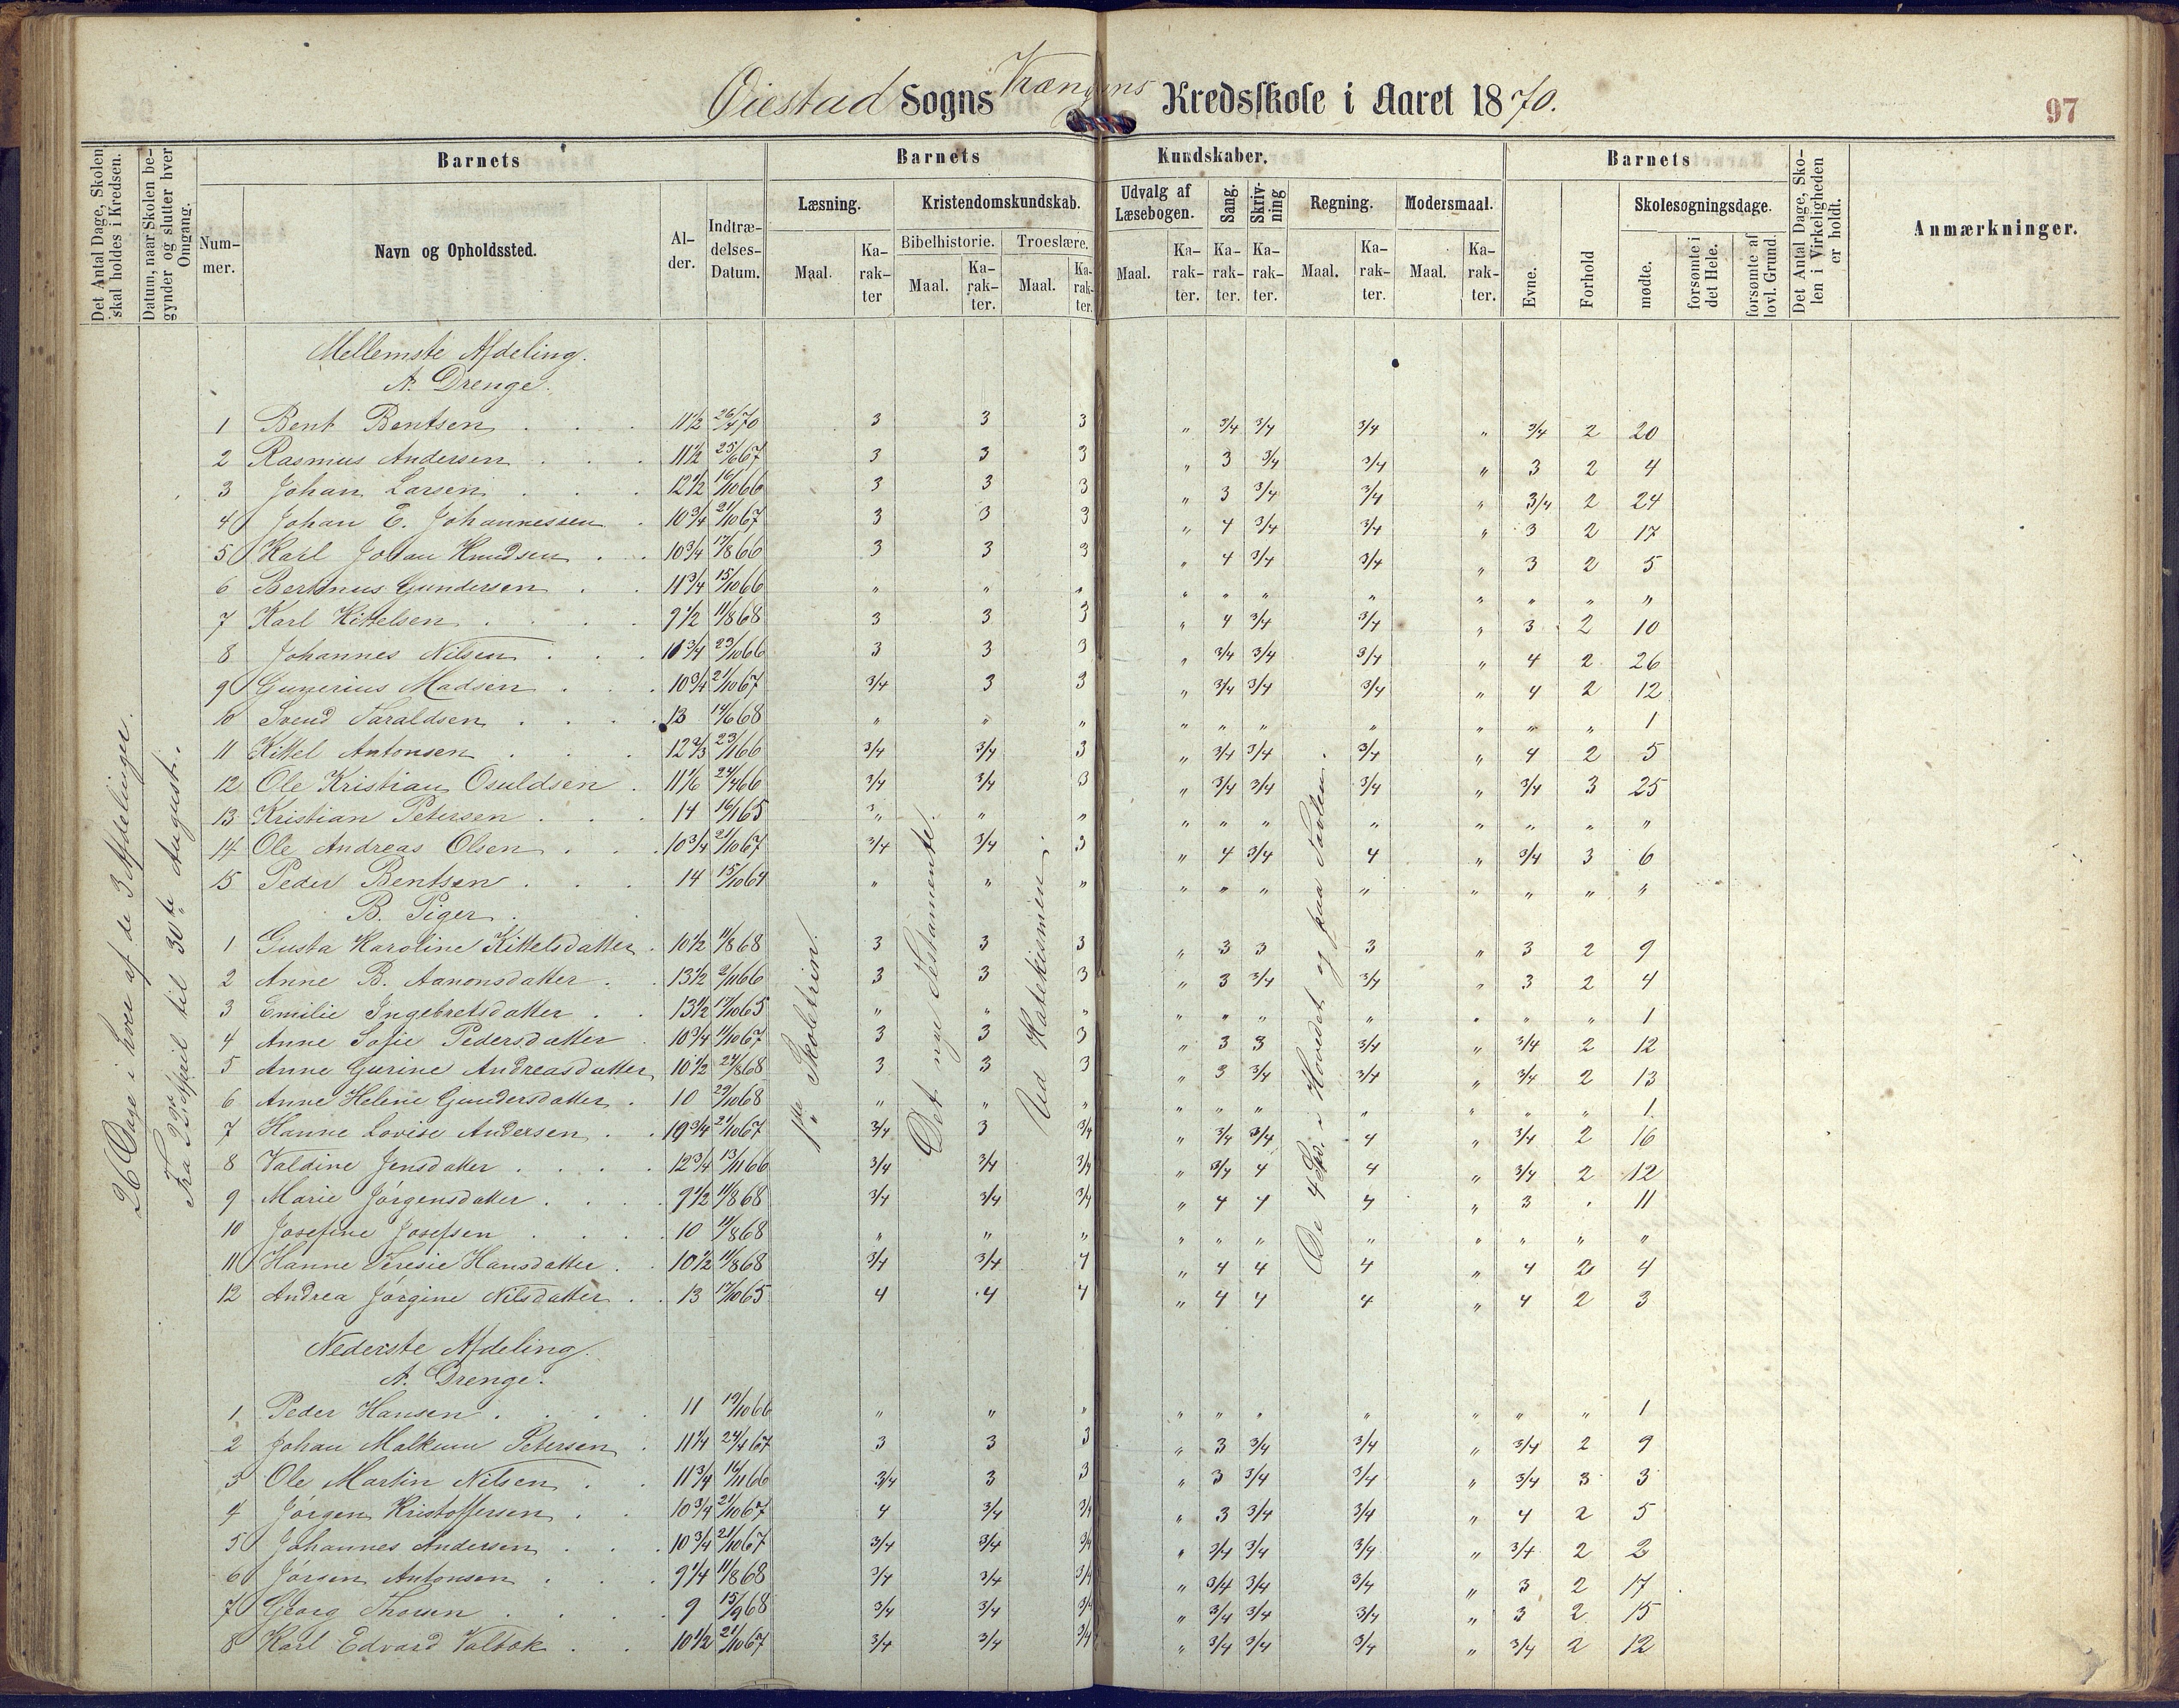 Øiestad Sogns Vrængens Kredsskole i Aaret 1870.
97
Det Antal Dage, Skolen skal holdes i Kredsen.
Datum, naar Skolen begynder og slutter hver Omgang.
Barnets
Barnets
Kundskaber.
Barnets
Det Antal Dage, Skolen i Virkeligheden er holdt.
Anmærkninger.
Nummer.
Navn og Opholdssted.
Alder.
Indtrædelses-Datum.
Læsning.
Kristendomskundskab.
Udvalg af Læsebogen.
Sang.
Skrivning
Regning.
Modersmaal.
Evne.
Forhold
Skolesøgningsdage.
Bibelhistorie.
Troeslære.
Maal.
Karakter
Maal.
Karakter.
Maal.
Karakter.
Maal.
Karakter.
Karakter.
Karakter.
Maal.
Karakter.
Maal.
Karakter.
mødte.
forsømte i det Hele.
forsømte af lovl. Grund.
26 Dage i hver af de 3 Afdelinger.
Fra 22de April til 30te August.
1ste Skoletrin.
Det nye Testamente.
Ud Katekismen.
De 4 Sp. i Hovedet og paa Tavlen.
Mellemste Afdeling.
A. Drenge.
1 Bent Bentsen 11½ 26/4 70 3 3 3 " 3/4 3/4 3/4 " 3/4 2 20
2 Rasmus Andersen 11½ 25/6 67 3 3 3 " 3 3/4 3/4 " 3 2 4
3 Johan Larsen 12½ 16/10 66 3 3 3 " 3 3/4 3/4 " 3/4 2 24
4 Johan E. Johannessen 10¾ 21/10 67 3 3 3 " 4 3/4 3/4 " 3 2 17
5 Karl Johan Knudsen 10¾ 17/8 66 3 3 3 " 4 3/4 3/4 " 3 2 5
6 Bertinus Gundersen 11¾ 15/10 66 " " " " " " " " " " "
7 Karl Kittelsen 9½ 11/8 68 3 3 3 " 4 3/4 3/4 " 3 2 10
8 Johannes Nilsen 10¾ 23/10 66 3 3 3 " 3/4 3/4 3/4 " 4 2 26
9 Gunerius Madsen 10¾ 21/10 67 3/4 3 3 " 3/4 3/4 3/4 " 4 2 12
10 Svend Taraldsen 13 14/6 68 " " " " " " " " " " 1
11 Kittel Antonsen 12⅔ 23/11 66 3/4 3/4 3 " 3/4 3/4 3/4 " 4 2 5
12 Ole Kristian Osuldsen 11⅙ 24/4 66 3/4 3/4 3 " 3/4 3/4 3/4 " 3/4 3 25
13 Kristian Petersen 14 16/1 65 " " " " " " " " " " "
14 Ole Andreas Olsen 10¾ 21/10 67 3/4 3/4 3 " 4 3/4 4 " 3/4 3 6
15 Peder Bentsen 14 15/10 64 " " " " " " " " " " "
B. Piger.
1 Gusta Karoline Kittelsdatter 10½ 11/8 68 3 3 3 " 3 3 3 " 3 2 9
2 Anne B. Aanonsdatter 13½ 2/11 66 3 3 3 " 3 3/4 3/4 " 3 2 4
3 Emilie Ingebretsdatter 13½ 17/10 65 " " " " " " " " " " 1
4 Anne Sofie Pedersdatter 10¾ 11/10 67 3 3 3 " 3 3 3/4 " 3/4 2 12
5 Anne Gurine Andreasdatter 10½ 24/8 68 3 3 3 " 3 3/4 3/4 " 3/4 2 13
6 Anne Helene Gundersdatter 10 29/10 68 " " " " " " " " " " 1
7 Hanne Lovise Andersen 10¾ 21/10 67 3/4 3 3/4 " 3/4 3/4 4 " 3/4 2 16
8 Valdine Jensdatter 12¾ 13/11 66 3/4 3/4 3/4 " 3/4 4 4 " 3/4 2 12
9 Marie Jørgensdatter 9½ 11/8 68 3/4 3/4 3/4 " 4 4 4 " 3 . 11
10 Josefine Josefsen 10 11/8 68 " " " " " " " " " " "
11 Hanne Teresie Hansdatter 10½ 11/8 68 3/4 3/4 4 " 4 4 4 " 4 2 4
12 Andrea Jørgine Nilsdatter 13 17/10 65 4 4 4 " 4 4 4 " 4 2 3
Nederste Afdeling.
A. Drenge.
1 Peder Hansen 11 19/10 66 " " " " " " " " " " 1
2 Johan Malkum Petersen 11¼ 24/4 67 3 3 3 " 3 3/4 3/4 " 3/4 2 9
3 Ole Martin Nilsen 11¾ 16/11 66 3/4 3 3 " 3 3/4 3/4 " 3/4 3 3
4 Jørgen Kristoffersen 10¾ 21/10 67 4 3/4 3/4 " 3 3/4 3/4 " 4 2 5
5 Johannes Andersen 10¾ 21/10 67 3/4 3/4 3/4 " 3/4 3/4 3/4 " 3/4 2 2
6 Jørgen Antonsen 9¼ 11/8 68 3/4 3/4 3/4 " 3/4 3/4 3/4 " 3 2 17
7 Georg Thorsen 9 15/9 68 3/4 3/4 3/4 " 3/4 3/4 3/4 " 3 2 15
8 Karl Edvard Valbok 10½ 21/10 67 3/4 3/4 3/4 " 3/4 3/4 3/4 " 3/4 2 12